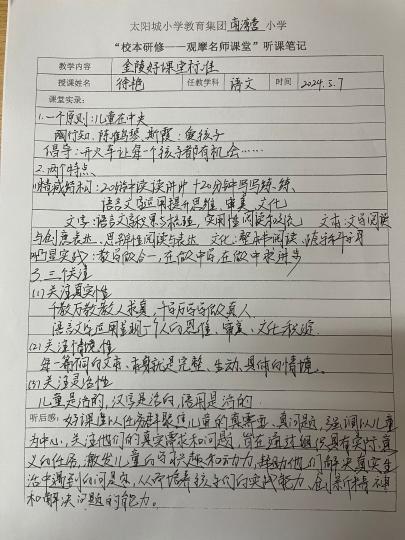 太阳城小学教育集团 小学
“校本研修——观摩名师课堂”听课笔记
教学内容 金陵好课堂标准
授课姓名 徐艳 任教学科 语文 时间 2024.5.7
课堂实录:
1.一个原则:儿童在中央
陶行知、陈鹤琴、斯霞:爱孩子
倡导:开火车让每一个孩子都有机会……
2.两个特点
(1)精减结构:20分钟读读讲讲+20分钟写写练练
语言文字运用提升思维、审美、文化
文字:语言文字积累与梳理,实用性阅读与交流 文本:文学阅读
与创意表达、思辨性阅读与表达 文化:整本书阅读、跨学科学习
(2)凸显实践:教学做合一,在做中学 在做中求进步
3.三个关注
(1)关注真实性
千教万教教人求真,千学万学学做真人
语言文字运用呈现一个人的思维、审美、文化
(2)关注情境性
每一篇 的文本、本身就是完整、生动、具体的情境。
(3)关注灵活性
儿童是活的,汉字是活的,语用是活的.
听后感: 好课堂以任务群聚焦儿童的真需要、真问题,强调以儿童
为中心,关注他们的真实需求和问题,旨在通过组织具有实际意
义的任务,激发儿童的学习兴趣和动力,帮助他们解决真实生
活中遇到的问题,从而培养孩子们的实践能力、创新精神
和解决问题的能力。